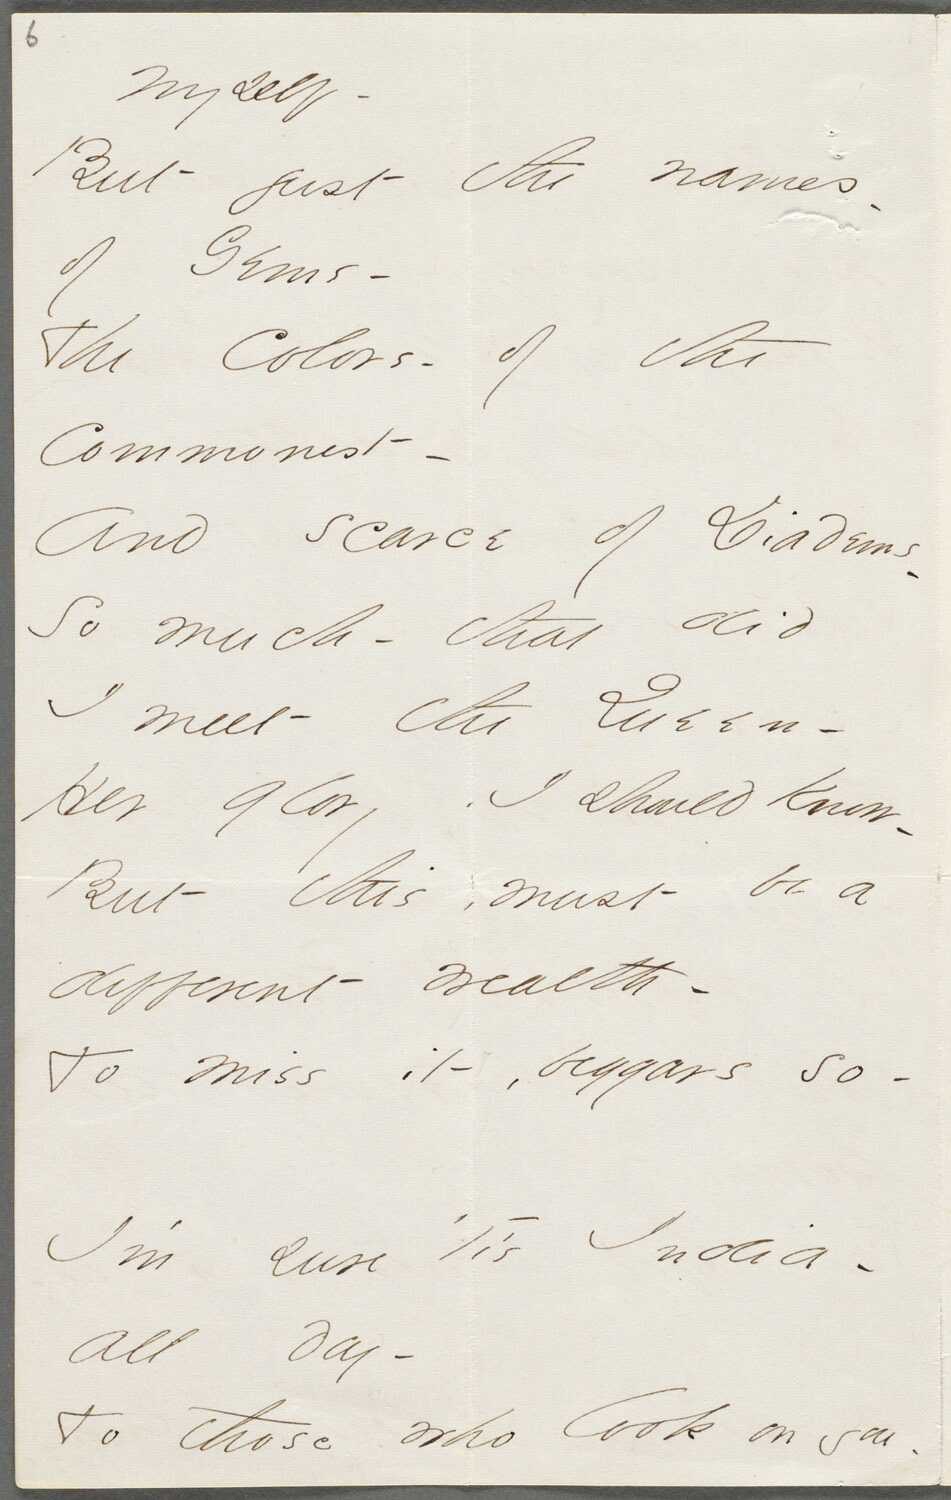 6
Myself -
But just the names -
of Gems -
The Colors - of the
Commonest -
And scarce of Diadems -
So much - that did
I meet the Queen -
Her glory I should know -
But this, must be a
different wealth -
To miss it, beggars so -
I'm sure 'tis India -
all day -
To those who look on you -